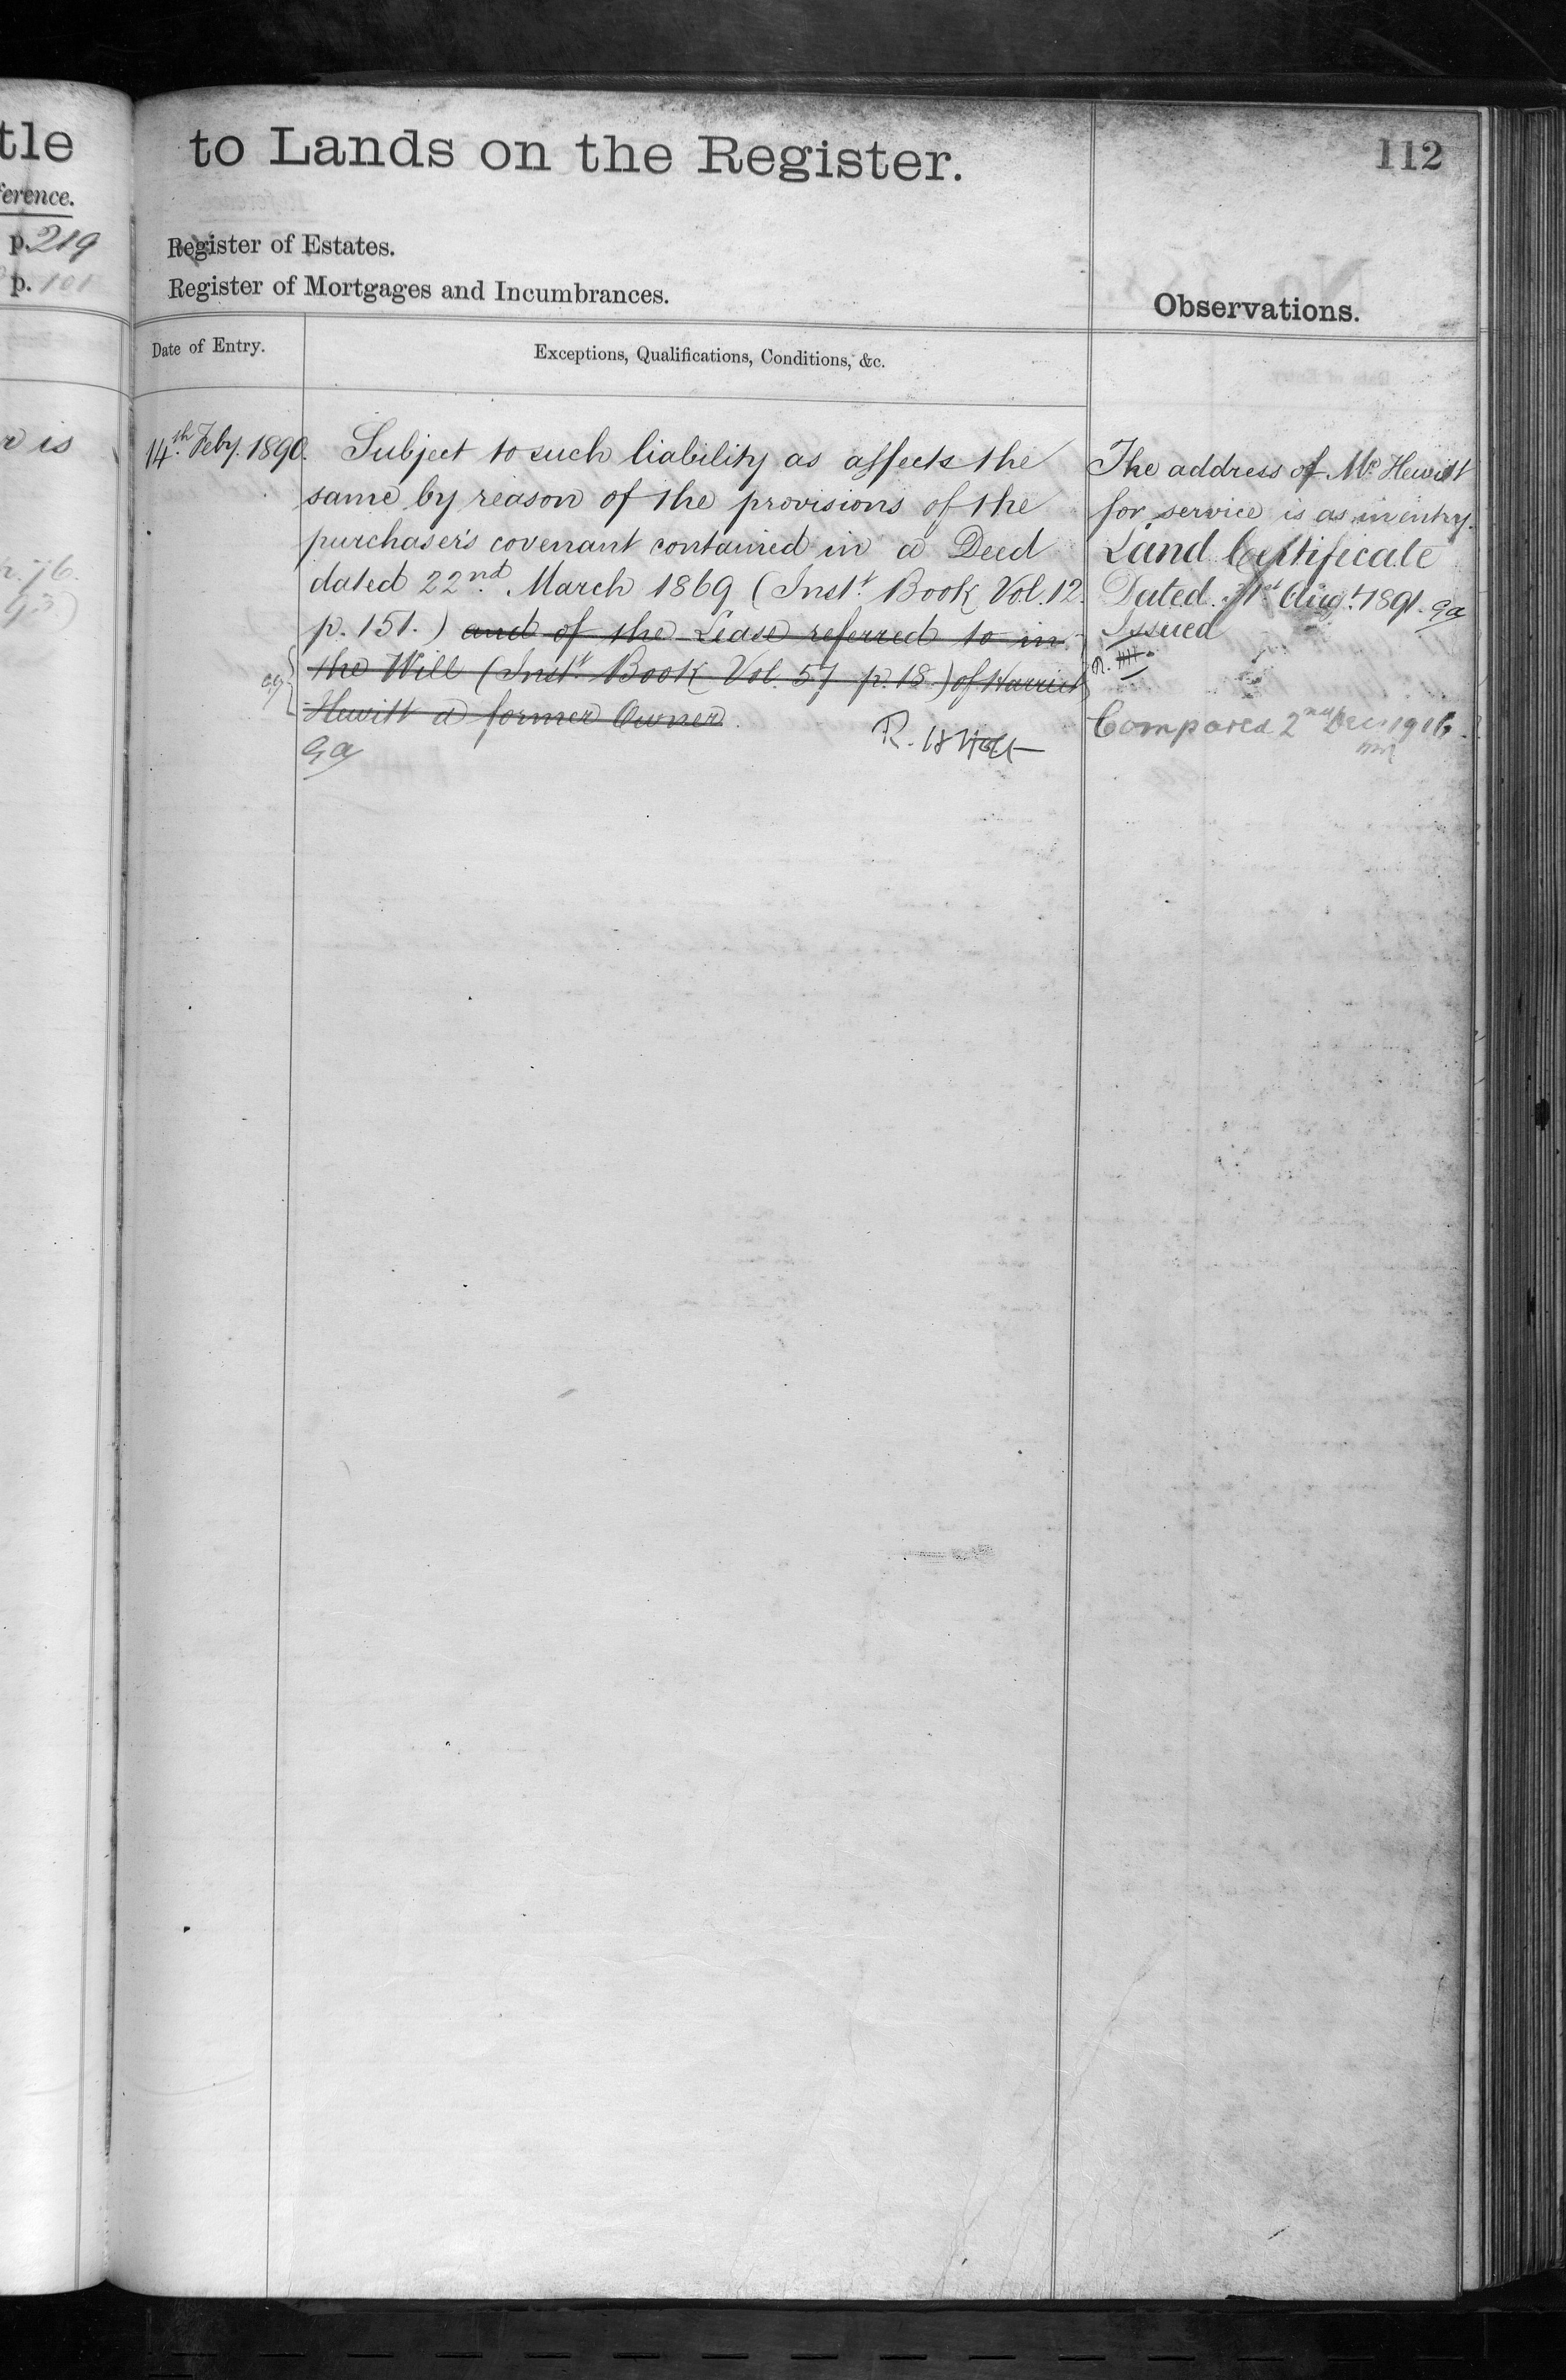 tle
ference.
p. 219
p. 101
r is
to Lands on the Register.
112
Register of Estates.
Register of Mortgages and Incumbrances.
Observations.
Date of Entry.
Exceptions, Qualifications, Conditions, &c.
14.th Feby. 1890.
Subject to such liability as affects the
same by reason of the provisions of the
purchaser's covenant contained in a Deed
dated 22nd. March 1869 (Inst.t Book Vol. 12.
p. 151.) and of the Lease referred to in
the Will (Inst.t Book Vol. 57 p. 18.) of Harriet
Hewitt a former Owner.
The address of Mr Hewitt
for service is as in entry.
Land Certificate
Dated Aug.t 1891.
Issued
Compared 2nd Dec. 1916.